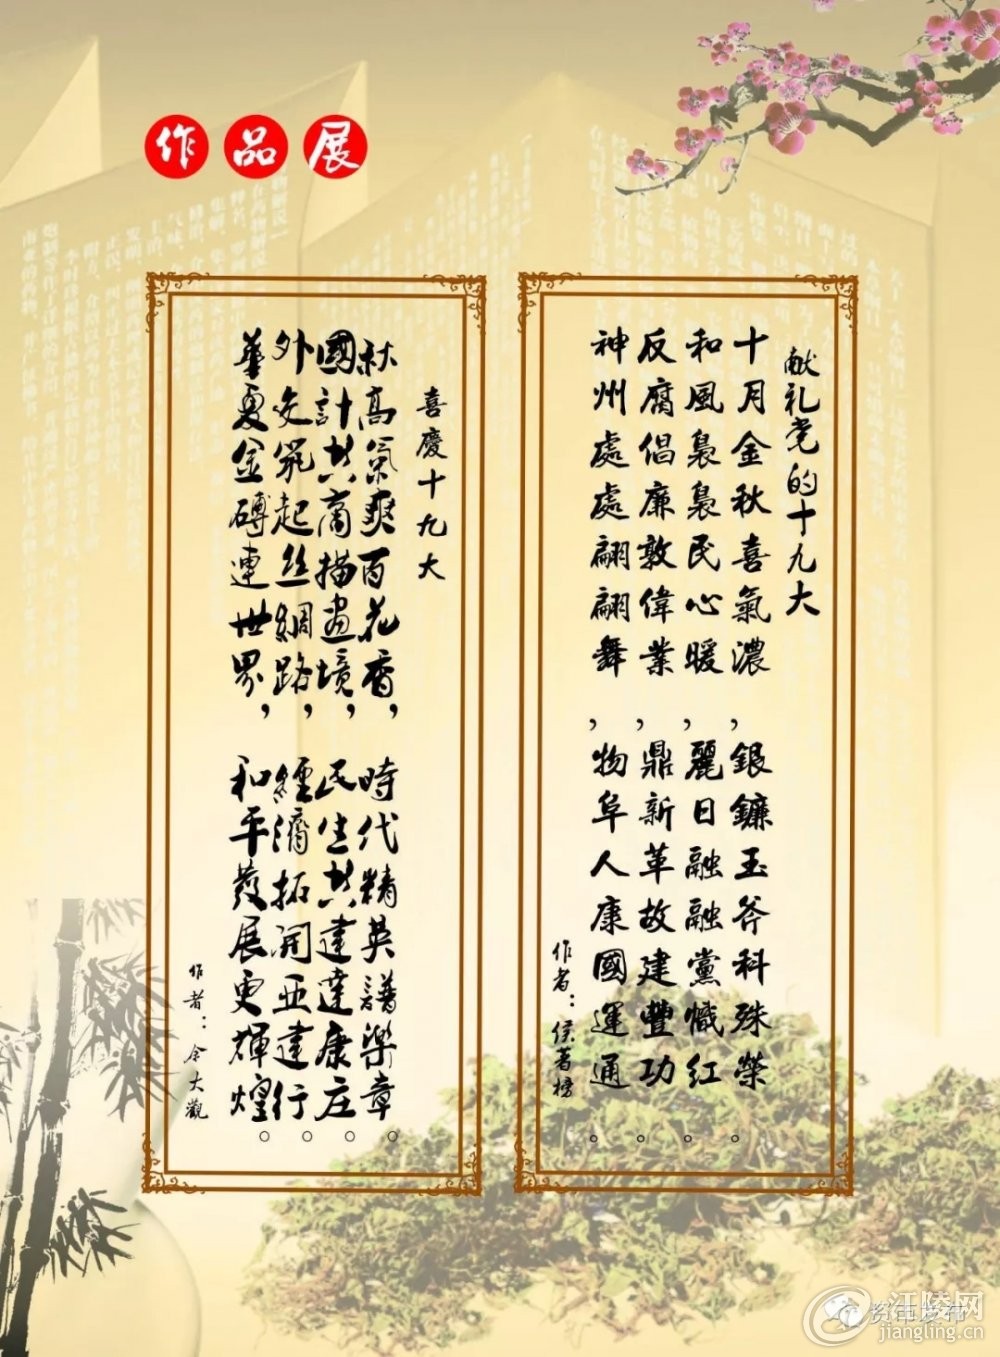 作品展
献礼党的十九大
十月金秋喜氣濃，銀鐮玉斧科殊榮。
和風裊裊民心暖，麗日融融黨幟紅。
反腐倡廉敦偉業，鼎新革故建豐功。
神州處處翩翩舞，物阜人康國運通。
作者：侯著榜
喜慶十九大
秋高氣爽百花香，時代精英譜樂章。
國計共商描畫境，民生共建達康庄。
外交飛起丝綢路，經濟拓開亚建行。
華夏金磚連世界，和平發展更輝煌。
作者：余大觀
资市发布
江陵网
jiangling.cn